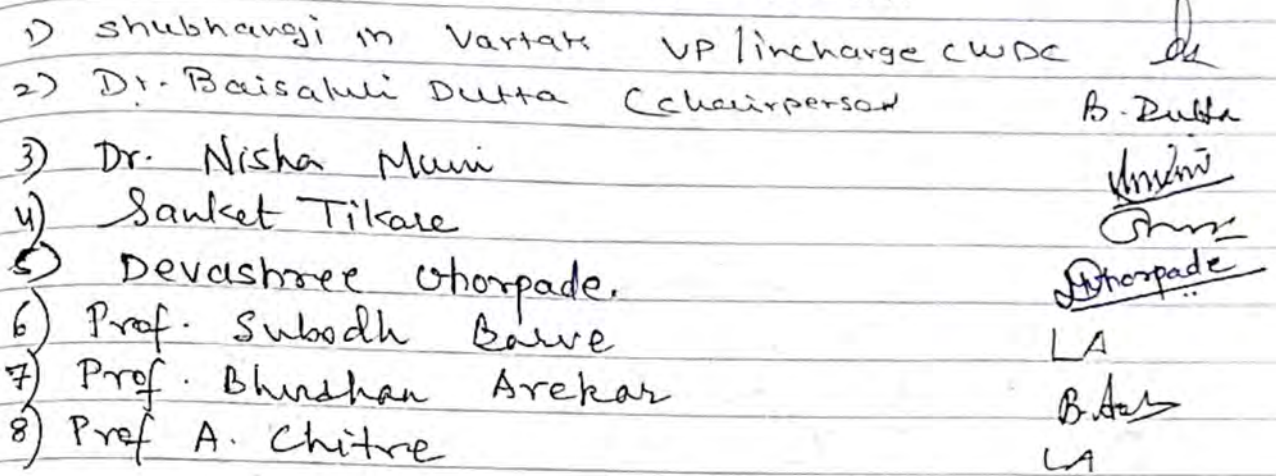 1) Shubhangi m Vartak VP/incharge CWDC
2) Dr. Baisakhi Dutta (chairperson B. Dutta
3) Dr. Nisha Muni
4) Sanket Tikare
5) Devashree Ghorpade. Ghorpade
6) Prof. Subodh Barve LA
7) Prof. Bhushan Arekar
8) Prof A. Chitre LA